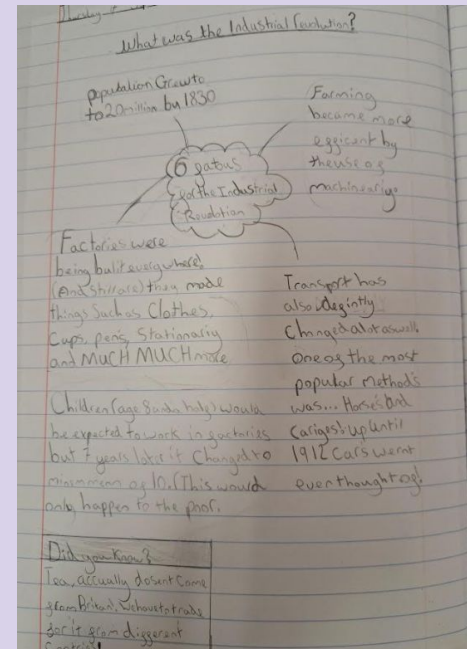 What was the Industrial Revolution?
population Grew to
to 20 million by 1830
Farming
became more
efficent by
the use of
machineariy.
6 fatus
for the Industrial
Revolution
Factories were
being bulit everywhere!
(And still are) they made
things Such as Clothes,
Cups, pens, Stationariy
and MUCH MUCH more
Transport has
also defintly
Changed alot aswell
one of the most
popular methods
was... Horse's And
Cariges! up Until
1912 Cars wernt
even thought of!
Children (age 8 and a half) would
be expected to work in factories
but 7 years later it Changed to
minimmem of 10. (This would
only happen to the poor.
Did you Know?
Tea, accually dosent Come
from Britan, we have to trade
for it from different